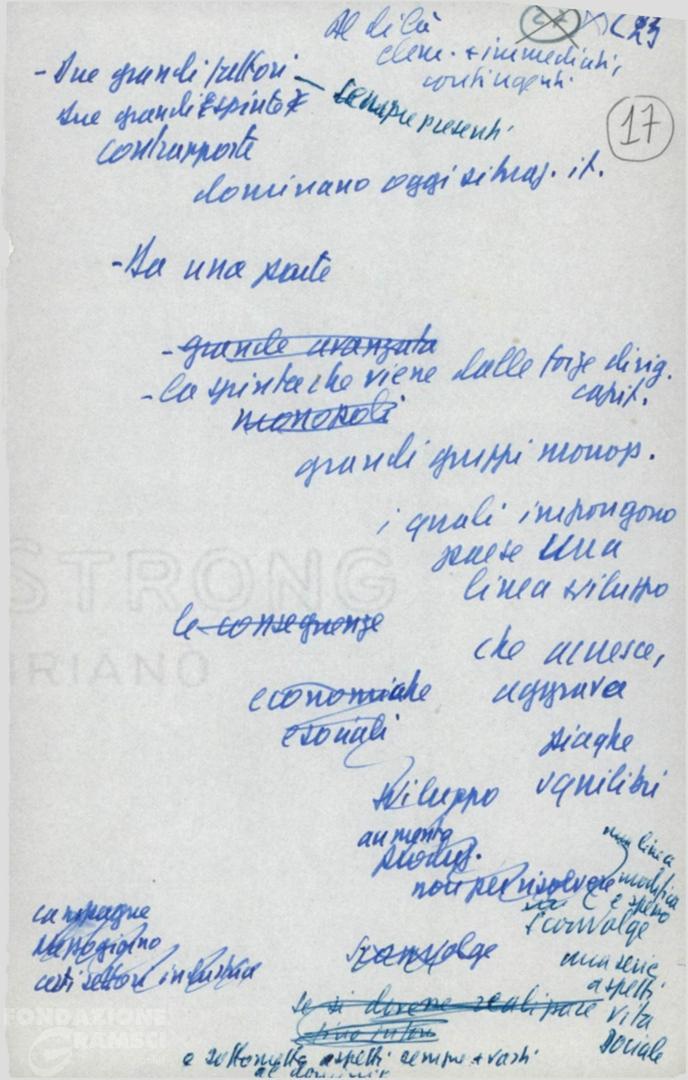 Al di là
elem. + immediati,
contingenti
23
17
- Due grandi settori
due grandi spinte
contrapposte
sempre presenti
dominano oggi situaz. it.
- Da una parte
- grande avanzata
- la spinta che viene dalle forze dirig.
capit.
monopoli
grandi gruppi monop.
i quali impongono
paese una
linea sviluppo
le conseguenze
che accresce,
economiche
aggrava
e sociali
piaghe
squilibri
sviluppo
aumento
produz.
non per risolvere
una linea
modifica
e spesso
sconvolge
campagne
Mezzogiorno
certi settori industria
sconvolge
una serie
aspetti
vita
sociale
se si
realizzare
e sottomette aspetti sempre + vasti
al dominio
STRONG
BRIANO
FONDAZIONE
GRAMSCI